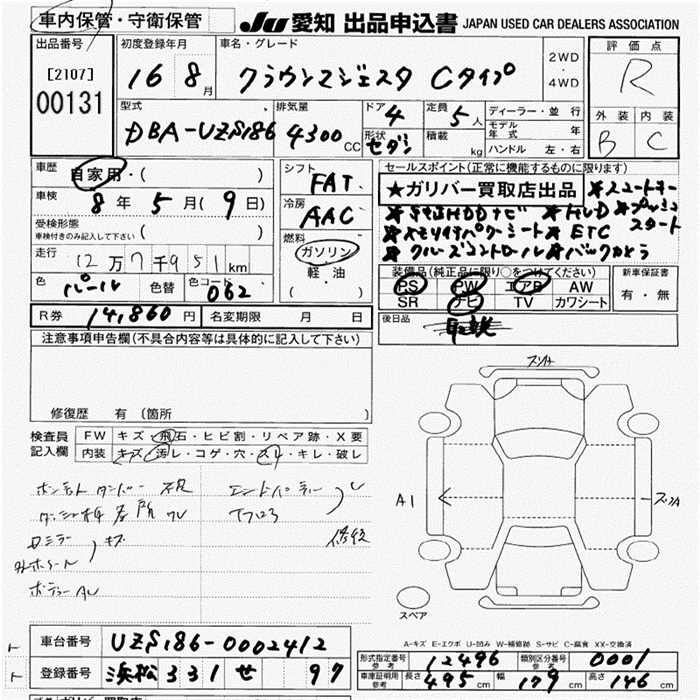 車内保管・守衛保管 JU 愛知 出品申込書 JAPAN USED CAR DEALERS ASSOCIATION
出品番号 [2107] 00131
初度登録年月 16 8月
車名・グレード クラウンマジェスタ Cタイプ
2WD・4WD
評価点 R
外装 B 内装 C
型式 DBA-UZS186
排気量 4300 CC
ドア 4
形状 セダン
定員 5人
積載 kg
ディーラー・並行
モデル年式 年
ハンドル 左・右
車歴 自家用・( )
車検 8年 5月(9日)
受検形態
車検付きのみ記入して下さい ( )
走行 12万7千951km
色 パール 色替 色コード 062
シフト FAT
冷房 AAC
燃料 ガソリン
軽・油
( )
セールスポイント(正常に機能するものに限ります)
★ガリバー買取店出品 ★スマートキー
★純正HDDナビ ★HUD ★プッシュスタート
★ETC
★クルーズコントロール ★バックカメラ
装備品(純正品に限り○をつけてください)
PS PW エアB AW
SR ナビ TV カワシート
新車保証書
有・無
R券 14,860円 名変期限 月 日
後日品
注意事項申告欄(不具合内容等は具体的に記入して下さい)
修復歴 有(箇所 )
検査員記入欄
FW キズ・飛石・ヒビ割・リペア跡・X要
内装 キズ・汚レ・コゲ・穴・スレ・キレ・破レ
キズ
修復
ボディーAU
A1
スペア
A-キズ E-エクボ U-凹み W-補修跡 S-サビ C-腐食 XX-交換済
車台番号 UZS186-0002412
登録番号 浜松 331 せ 97
形式指定番号 参考 12496 類別区分番号 参考 0001
車庫証明用 参考 長さ 495cm 幅 179cm 高さ 146cm